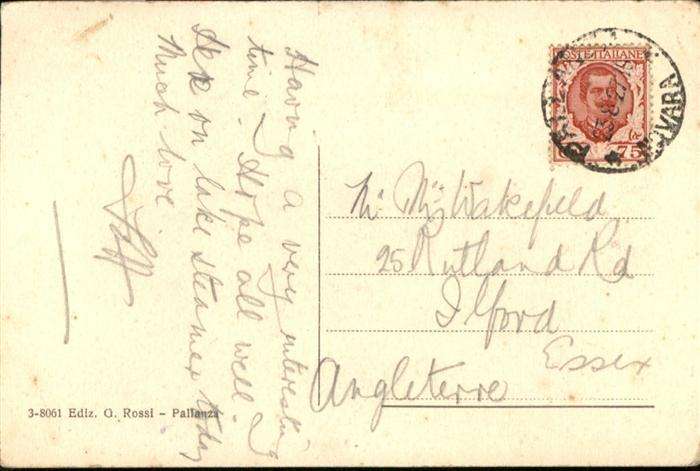 Having a very interesting
time. Hope all well. I
am on lake steamer today
Much love
POSTE ITALIANE
C. 75
PALLANZA
23.8.27
NOVARA
Mr Mrs Wakefield
25 Rutland Rd
Ilford
Essex
Angleterre
3-8061 Ediz. G. Rossi - Pallanza